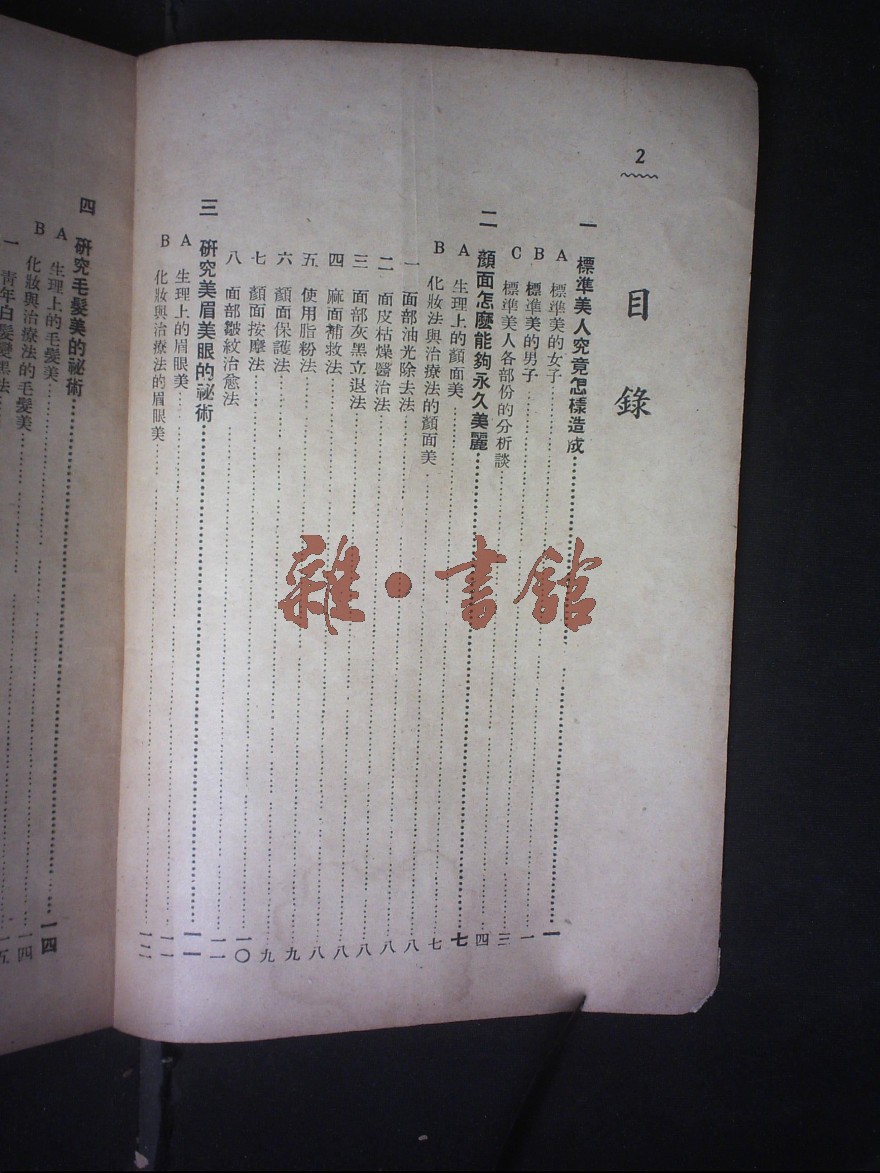 2
目錄
一 標準美人究竟怎樣造成……一
A 標準美的女子……一
B 標準美的男子……三
C 標準美人各部份的分析談……四
二 顏面怎麼能夠永久美麗……七
A 生理上的顏面美……七
B 化妝法與治療法的顏面美……八
一 面部油光除去法……八
二 面皮枯燥醫治法……八
三 面部灰黑立退法……八
四 麻面補救法……八
五 使用脂粉法……九
六 顏面保護法……九
七 顏面按摩法……一〇
八 面部皺紋治愈法……一一
三 研究美眉美眼的祕術……一一
A 生理上的眉眼美……一一
B 化妝與治療法的眉眼美……一二
四 研究毛髮美的祕術……一四
A 生理上的毛髮美……一四
B 化妝與治療法的毛髮美……一五
一 青年白髮變黑法
雜·書館